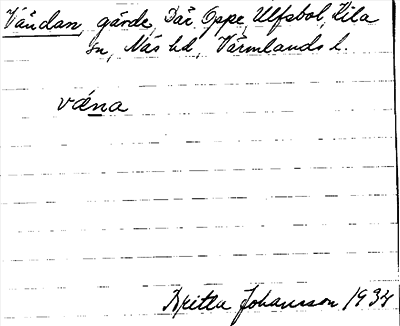 Vändan, gärde, Där Oppe, Ulfsbol, Kila
sn, Näs hd, Värmlands l.
væna
Britta Johansson 1934